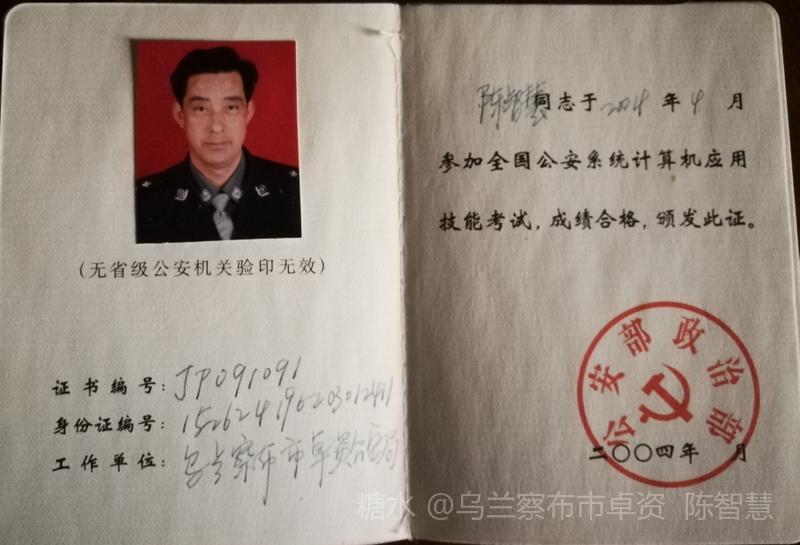 (无省级公安机关验印无效)
证书编号：JP091091
身份证编号：152624196203012411
工作单位：乌兰察布市卓资公安局
陈智慧同志于2004年4月
参加全国公安系统计算机应用
技能考试，成绩合格，颁发此证。
公安部政治部
二〇〇四年 月
糖水 @乌兰察布市卓资 陈智慧